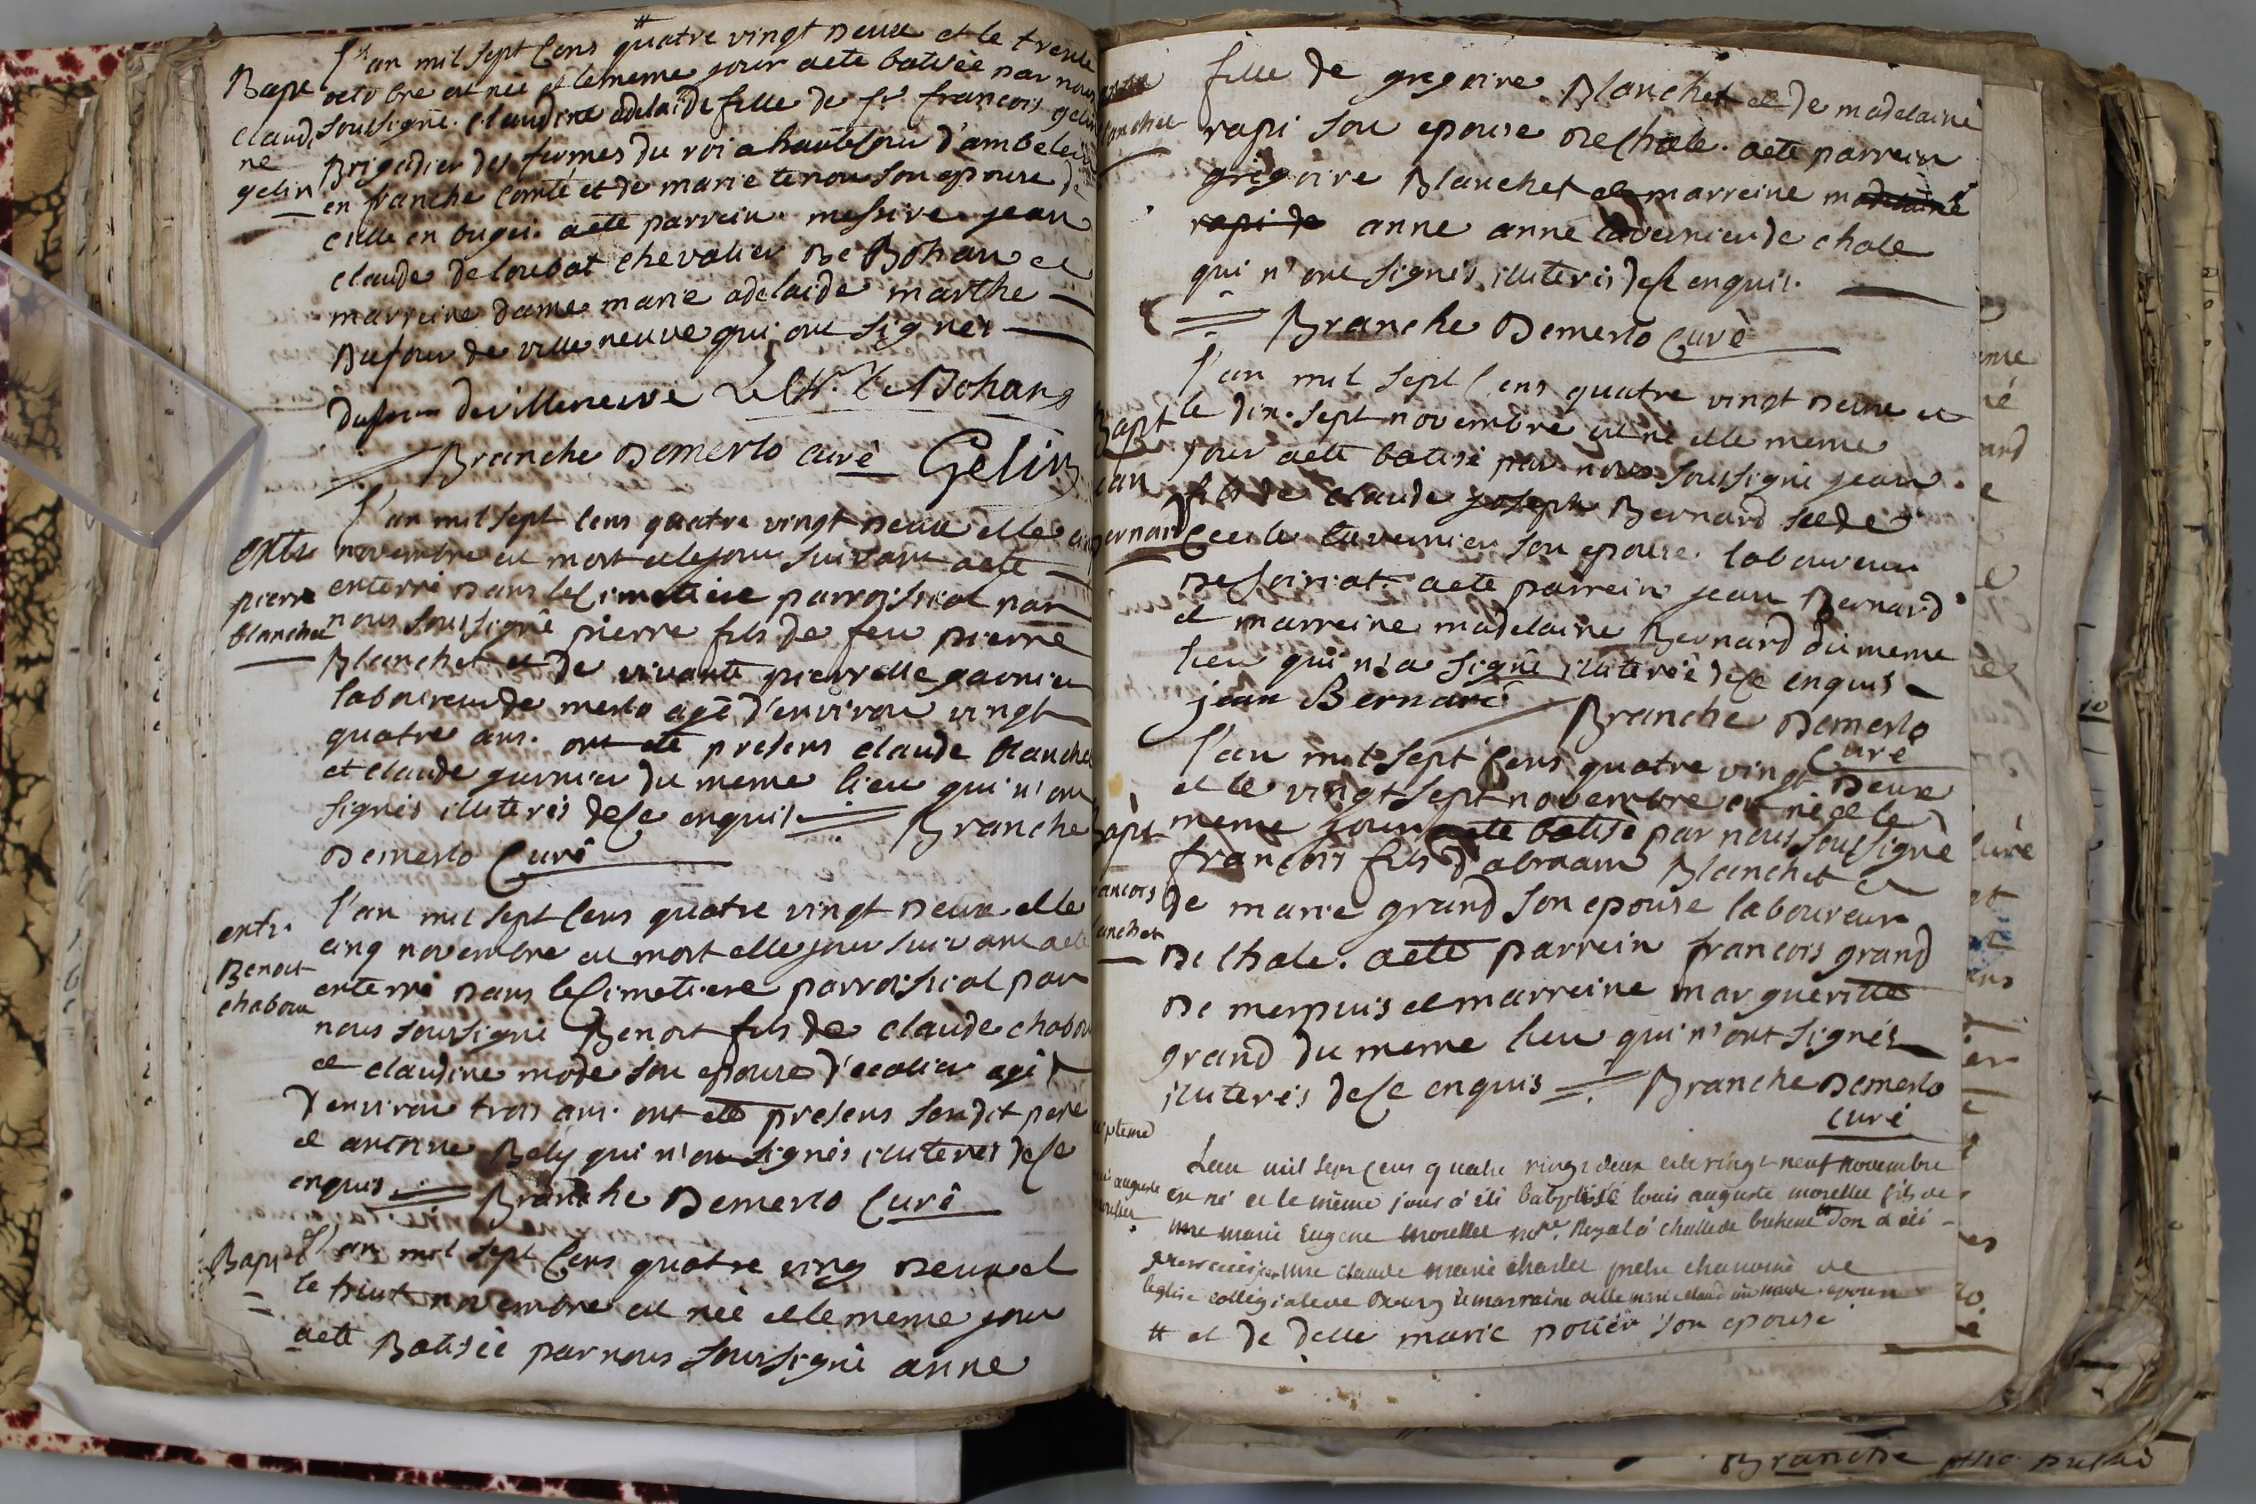 l'an mil sept cens quatre vingt deux et le trente
octobre est née et le meme jour a eté batisée par nous
soussigné claudine adelaide fille de sr francois gelin
Brigadier des fermes du roi a hautecour d'ambeleu
en franche comté et de marie tenon son epouse de
en bugei. a eté parrein messire jean
claude de loubat chevalier De Bohan et
marreine dame marie adelaide marthe
Dufour de ville neuve qui ont signés
Bapt
claudi
ne
gelin
dufour de villeneuve Le Ch. De Bohan
Branche Demerlo curé Gelin
l'an mil sept cens quatre vingt deux et le cinq
novembre est mort et le jour suivant a eté
enterré dans le cimetiere parroissial par
nous soussigné pierre fils de feu pierre
Blanchet et de vivante pierrette garnier
laboureur de merlo agé d'environ vingt
quatre ans. ont eté presens claude blanchet
et claude garnier du meme lieu qui n'ont
signés illiterés de ce enquis Branche
Demerlo Curé
pierre
blanchet
l'an mil sept cens quatre vingt deux et le
cinq novembre est mort et le jour suivant a eté
enterré dans le cimetiere parroissial par
nous soussigné Benoit fils de claude chabou
et claudine mode son epouse d'ecolier agé
D'environ trois ans. ont eté presens sondit pere
et antoine Bely qui n'ont signés illiterés de ce
enquis Branche Demerlo Curé
entr.
Benoit
chabou
l'an mil sept cens quatre ving deux et
le trent novembre est née et le meme jour
a eté Batisée par nous soussigné anne
Bapt
fille de gregoire Blanchet et de madelaine
rapi son epouse De chale. a eté parrein
grégoire Blanchet et marreine madelaine
rapi de anne anne tavernier de chale
qui n'ont signés illiterés de ce enquis.
Branche Demerlo Curé
l'an mil sept cens quatre vingt deux et
le dix-sept novembre est né et le meme
jour a eté batisé par nous soussigné jean
fils de claude joseph Bernard et de
Cecile tavernier son epouse laboureur
De soiriat. a eté parrein jean Bernard
et marreine madelaine Bernard du meme
lieu qui n'a signé illiterée de ce enquis
jean Bernard Branche Demerlo
Curé
Bapt
jean
Bernard
l'an mil sept cens quatre vingt deux
et le vingt sept novembre est né et le
meme jour a eté batisé par nous soussigné
francois fils d'abraam Blanchet et
de marie grand son epouse laboureur
De chale. a eté parrein francois grand
De merpuis et marreine marguerite
grand du meme lieu qui n'ont signés
illiterés de ce enquis Branche Demerlo
curé
Bapt
francois
blanchet
Lan mil sept cens quatre vingt deux et le vingt neuf novembre
est né et le même jour a été baptisé louis auguste morellet fils de
Mre marie Eugene Morellet Royal a # don a été
Mre claude marie charles pretre chanoine de
l'eglise collegiale de Bourg et marraine
# et de delle marie potier son epouse
Branche